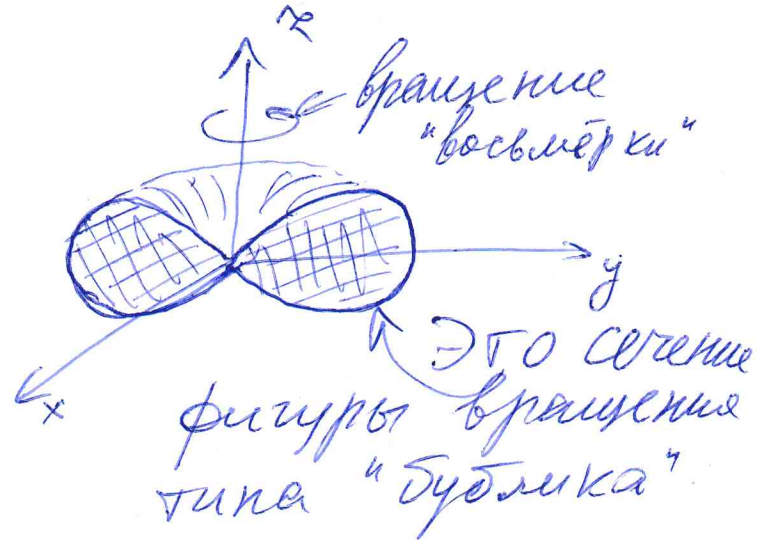 z
вращение
"восьмёрки"
y
x
Это сечение
фигуры вращения
типа "бублика"